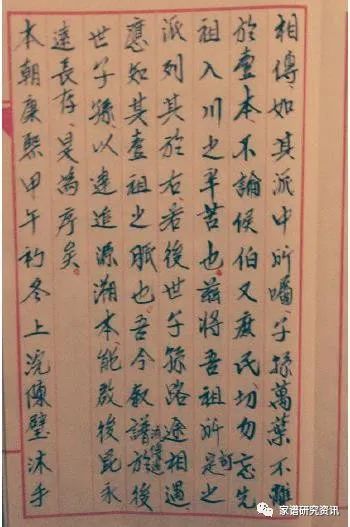 相傳、如其派中所囑、子孫萬葉不離
於壹本、不論侯伯又庶民、切勿忘先
祖入川之旱苦也、兹將吾祖所定之
派列其於右、若後世子孫路途相遇、
應如其壹祖之脈也、吾今叙譜於後
世子孫、以遠追源溯本、能啟後昆永
遠長存、是為序矣
本朝康熙甲午初冬上浣陳璧沐手
家谱研究资讯